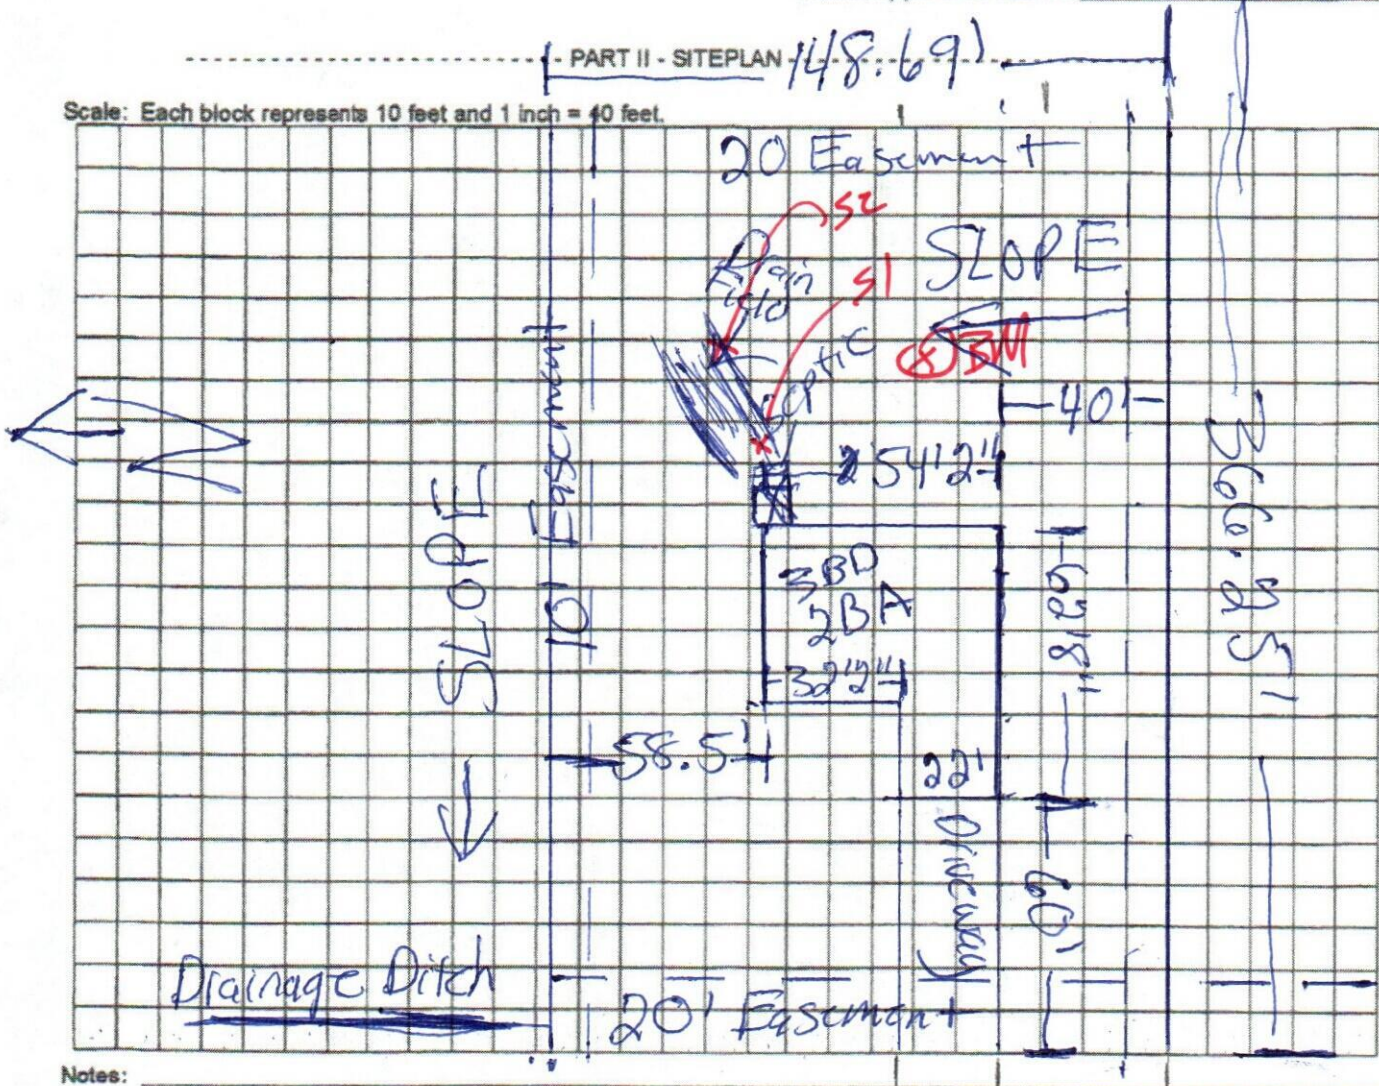 PART II - SITEPLAN 148.69'
Scale: Each block represents 10 feet and 1 inch = 40 feet.
20 Easement
S2
SLOPE
Drain
Field
S1
Septic
BM
40'
54'2"
366.25'
10' Easement
SLOPE
3BD
2BA
62'8"
32'2"
58.5'
22'
Driveway
60'
Drainage Ditch
20' Easement
Notes: